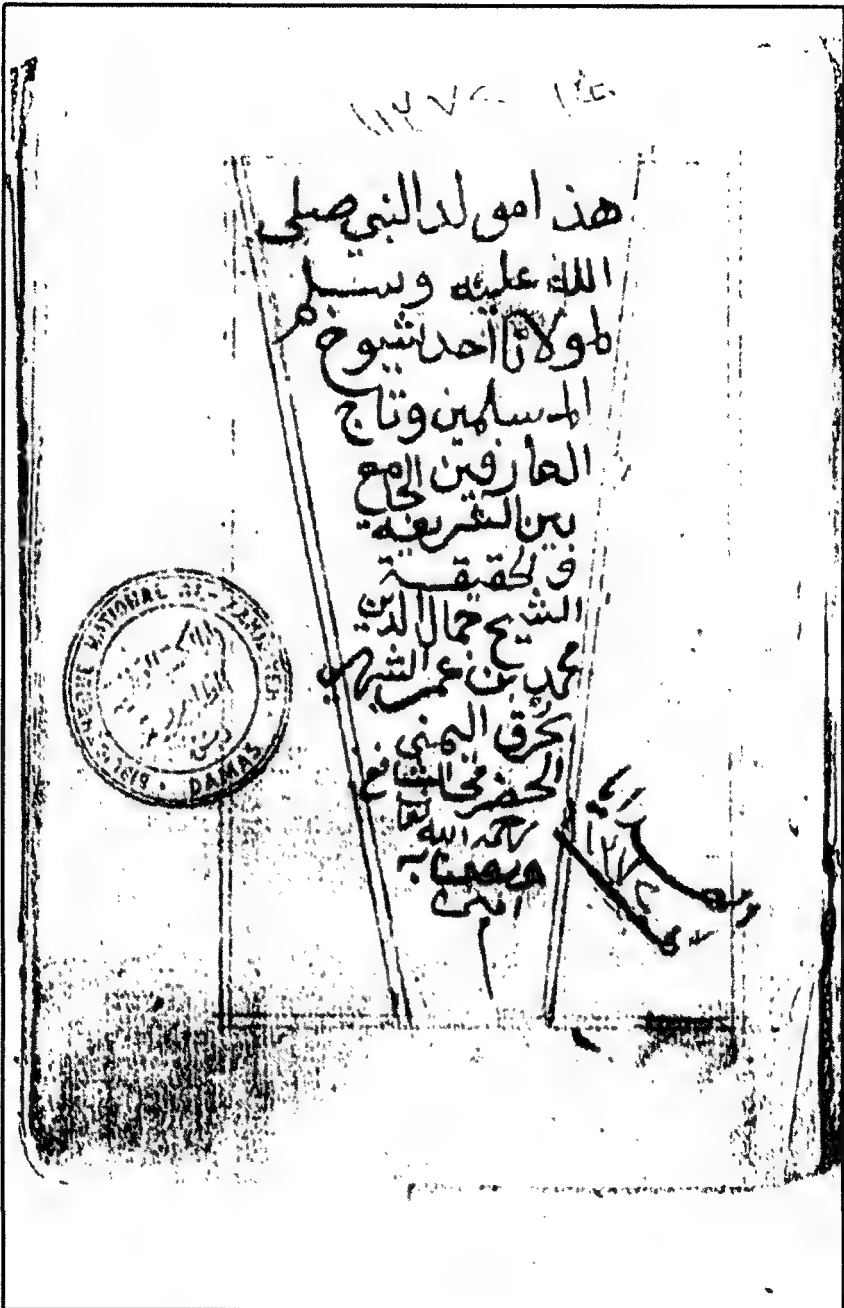 ١١٣٧٠
هذا مولد النبي صلى
الله عليه وسلم
لمولانا أحد شيوخ
المسلمين وتاج
العارفين الجامع
بين الشريعة
والحقيقة
الشيخ جمال الدين
محمد بن عمر الشهير
بحرق اليمني
الحضرمي الشافعي
رحمه الله تعالى
ونفعنا به
امين
NATIONAL
DAMAS
1919